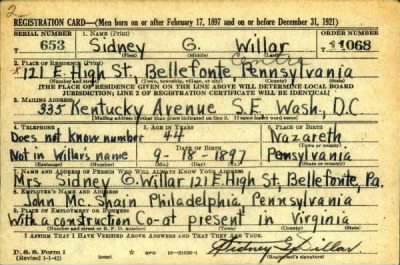 2
REGISTRATION CARD—(Men born on or after February 17, 1897 and on or before December 31, 1921)
SERIAL NUMBER 1. NAME (Print) ORDER NUMBER
T 653 Sidney G. Willar T11068
(First) (Middle) (Last)
2. PLACE OF RESIDENCE (Print) Centre
121 E. High St, Bellefonte, Pennsylvania
(Number and street) (Town, township, village, or city) (County) (State)
[THE PLACE OF RESIDENCE GIVEN ON THE LINE ABOVE WILL DETERMINE LOCAL BOARD
JURISDICTION; LINE 2 OF REGISTRATION CERTIFICATE WILL BE IDENTICAL]
3. MAILING ADDRESS
335 Kentucky Avenue S.E. Wash, D.C
[Mailing address if other than place indicated on line 2. If same insert word same]
4. TELEPHONE 5. AGE IN YEARS 6. PLACE OF BIRTH
Does not know number 44 Nazareth
DATE OF BIRTH (Town or county)
Not in Willar's name 9-18-1897 Pennsylvania
(Exchange) (Number) (Mo.) (Day) (Yr.) (State or country)
7. NAME AND ADDRESS OF PERSON WHO WILL ALWAYS KNOW YOUR ADDRESS
Mrs Sidney G. Willar 121 E. High St, Bellefonte, Pa.
8. EMPLOYER'S NAME AND ADDRESS
John Mc. Shain Philadelphia, Pennsylvania
9. PLACE OF EMPLOYMENT OR BUSINESS
With a construction Co-at present in Virginia
(Number and street or R. F. D. number) (Town) (County) (State)
I AFFIRM THAT I HAVE VERIFIED ABOVE ANSWERS AND THAT THEY ARE TRUE.
D. S. S. Form 1
(Revised 1-1-42) (over)
Sidney G. Willar